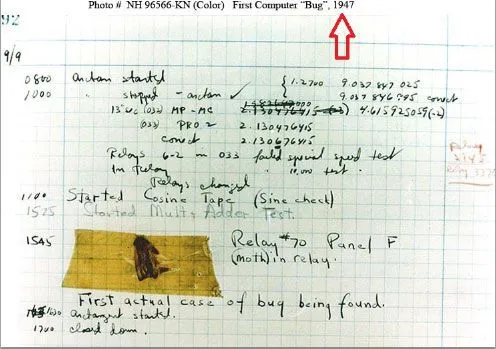 Photo # NH 96566-KN (Color) First Computer "Bug", 1947
92
9/9
0800 antan started
1000 " stopped - antan ✓ { 1.2700 9.037 847 025
9.037 846 995 correct
13" uc (032) MP - MC 2.130476415 4.615925059(-2)
(033) PRO 2 2.130476415
correct 2.130676415
Relays 6-2 in 033 failed special speed test
in Relay " 10,000 test.
Relays changed
Relay
2145
Relay 3370
1100 Started Cosine Tape (Sine check)
1525 Started Mult+ Adder Test.
1545 Relay #70 Panel F
(moth) in relay.
First actual case of bug being found.
1630 antangent started.
1700 closed down.